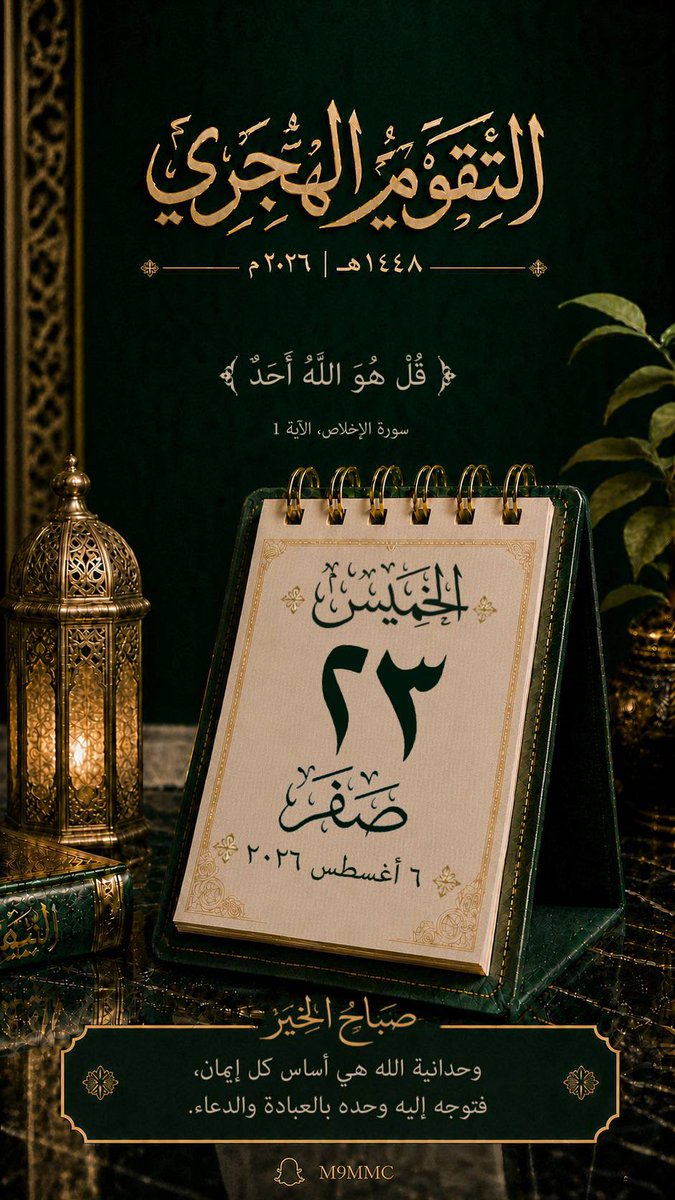 التَّقْوِيمُ الْهِجْرِي
١٤٤٨هـ | ٢٠٢٦م
﴿ قُلْ هُوَ اللَّهُ أَحَدٌ ﴾
سورة الإخلاص، الآية 1
الخَمِيس
٢٣
صَفَر
٦ أغسطس ٢٠٢٦
صَبَاحُ الخَيْر
وحدانية الله هي أساس كل إيمان،
فتوجه إليه وحده بالعبادة والدعاء.
M9MMC